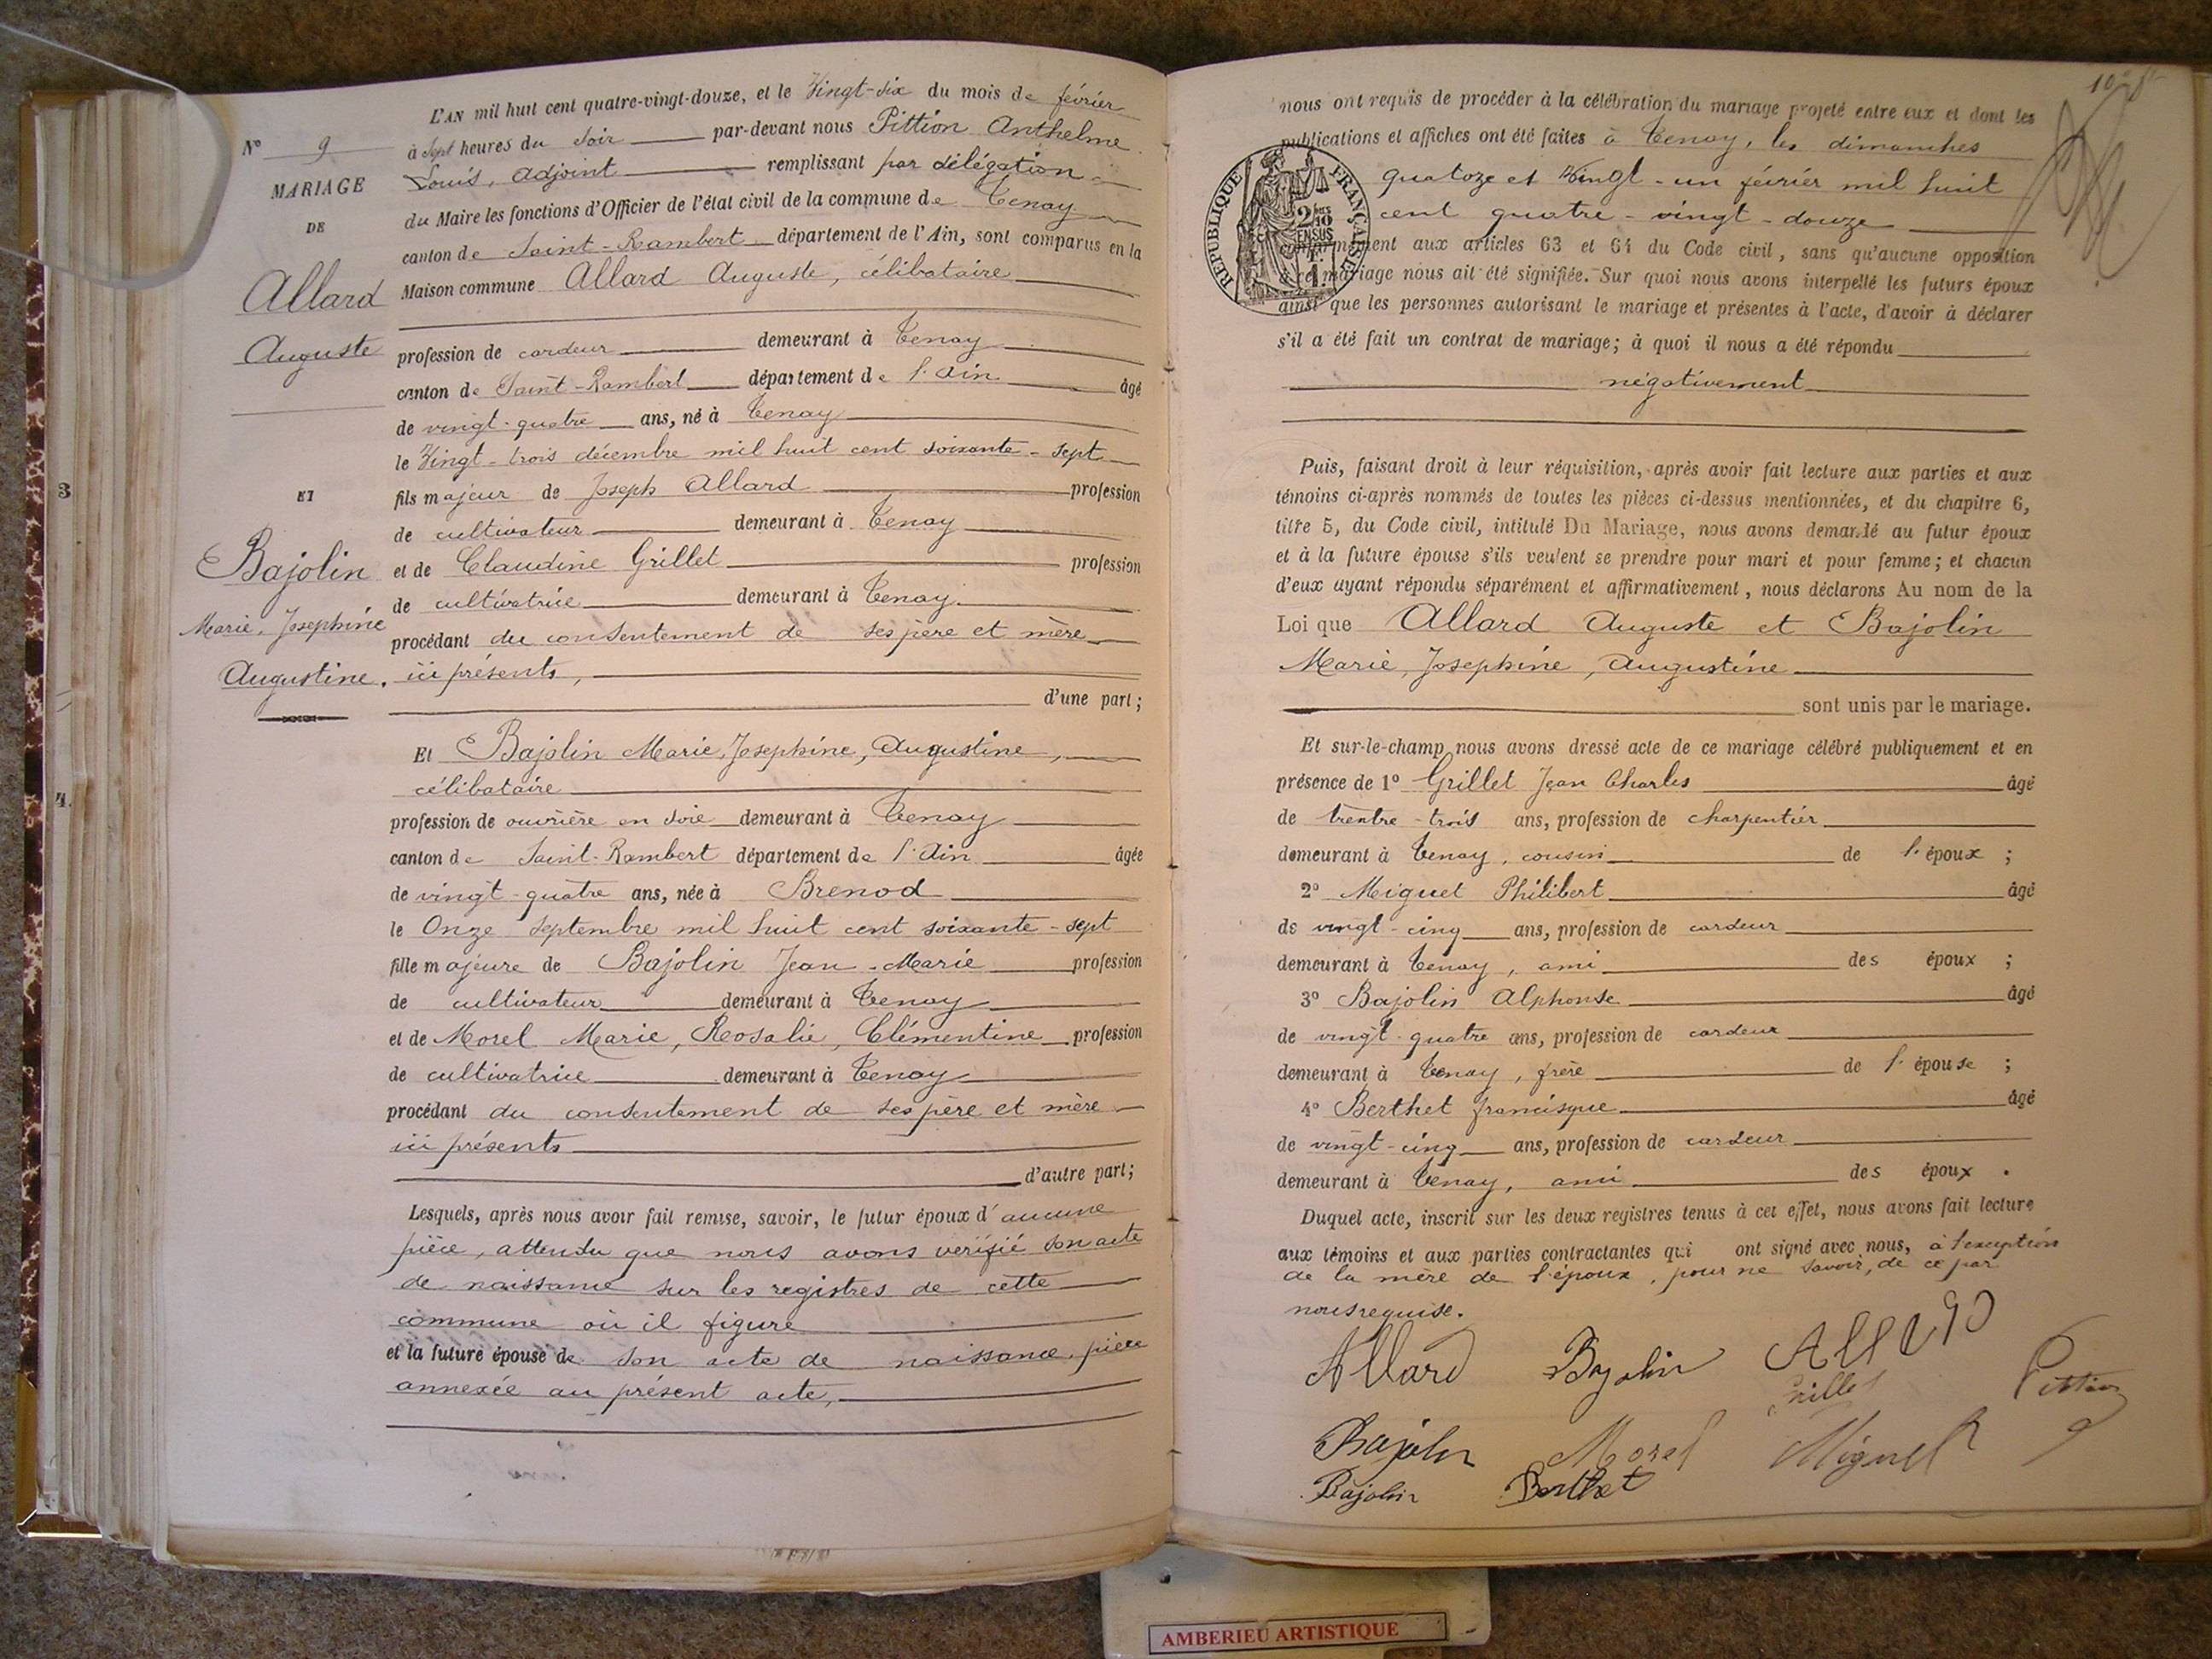 L'AN mil huit cent quatre-vingt-douze, et le Vingt-six du mois de février
à Sept heures du Soir par-devant nous Pittion Anthelme
Louis, Adjoint remplissant par délégation
du Maire les fonctions d'Officier de l'état civil de la commune de Tenay
canton de Saint-Rambert département de l'Ain, sont comparus en la
Maison commune Allard Auguste, célibataire
profession de cardeur demeurant à Tenay
canton de Saint-Rambert département de l'Ain âgé
de vingt-quatre ans, né à Tenay
le Vingt-trois décembre mil huit cent soixante-sept
fils majeur de Joseph Allard profession
de cultivateur demeurant à Tenay
et de Claudine Grillet profession
de cultivatrice demeurant à Tenay
procédant du consentement de ses père et mère
ici présents,
d'une part;
Et Bajolin Marie, Josephine, Augustine,
célibataire
profession de ouvrière en soie demeurant à Tenay
canton de Saint-Rambert département de l'Ain âgée
de vingt-quatre ans, née à Brenod
le Onze septembre mil huit cent soixante-sept
fille majeure de Bajolin Jean-Marie profession
de cultivateur demeurant à Tenay
et de Morel Marie, Rosalie, Clémentine profession
de cultivatrice demeurant à Tenay
procédant du consentement de ses père et mère
ici présents
d'autre part;
Lesquels, après nous avoir fait remise, savoir, le futur époux d'aucune
pièce, attendu que nous avons vérifié son acte
de naissance sur les registres de cette
commune où il figure
et la future épouse de son acte de naissance, pièce
annexée au présent acte,
N° 9
MARIAGE
DE
Allard
Auguste
ET
Bajolin
Marie, Josephine
Augustine.
3
4.
nous ont requis de procéder à la célébration du mariage projeté entre eux et dont les
publications et affiches ont été faites à Tenay, les dimanches
quatoze et Vingt-un février mil huit
cent quatre-vingt-douze
conformément aux articles 63 et 64 du Code civil, sans qu'aucune opposition
à ce mariage nous ait été signifiée. Sur quoi nous avons interpellé les futurs époux
ainsi que les personnes autorisant le mariage et présentes à l'acte, d'avoir à déclarer
s'il a été fait un contrat de mariage; à quoi il nous a été répondu
négativement
Puis, faisant droit à leur réquisition, après avoir fait lecture aux parties et aux
témoins ci-après nommés de toutes les pièces ci-dessus mentionnées, et du chapitre 6,
titre 5, du Code civil, intitulé Du Mariage, nous avons demandé au futur époux
et à la future épouse s'ils veulent se prendre pour mari et pour femme; et chacun
d'eux ayant répondu séparément et affirmativement, nous déclarons Au nom de la
Loi que Allard Auguste et Bajolin
Marie, Josephine, Augustine
sont unis par le mariage.
Et sur-le-champ nous avons dressé acte de ce mariage célébré publiquement et en
présence de 1° Grillet Jean Charles âgé
de trentre-trois ans, profession de charpentier
demeurant à Tenay, cousin de l'époux ;
2° Miguet Philibert âgé
de vingt-cinq ans, profession de cardeur
demeurant à Tenay, ami des époux ;
3° Bajolin Alphonse âgé
de vingt-quatre ans, profession de cardeur
demeurant à Tenay, frère de l'épouse ;
4° Berthet francisque âgé
de vingt-cinq ans, profession de cardeur
demeurant à Tenay, ami des époux .
Duquel acte, inscrit sur les deux registres tenus à cet effet, nous avons fait lecture
aux témoins et aux parties contractantes qui ont signé avec nous, à l'exception
de la mère de l'époux, pour ne savoir, de ce par
nous requise.
Allard Bajolin
Grillet Pittion
Bajolin Morel Miguet
Bajolin Berthet
RÉPUBLIQUE FRANÇAISE
AMBERIEU ARTISTIQUE